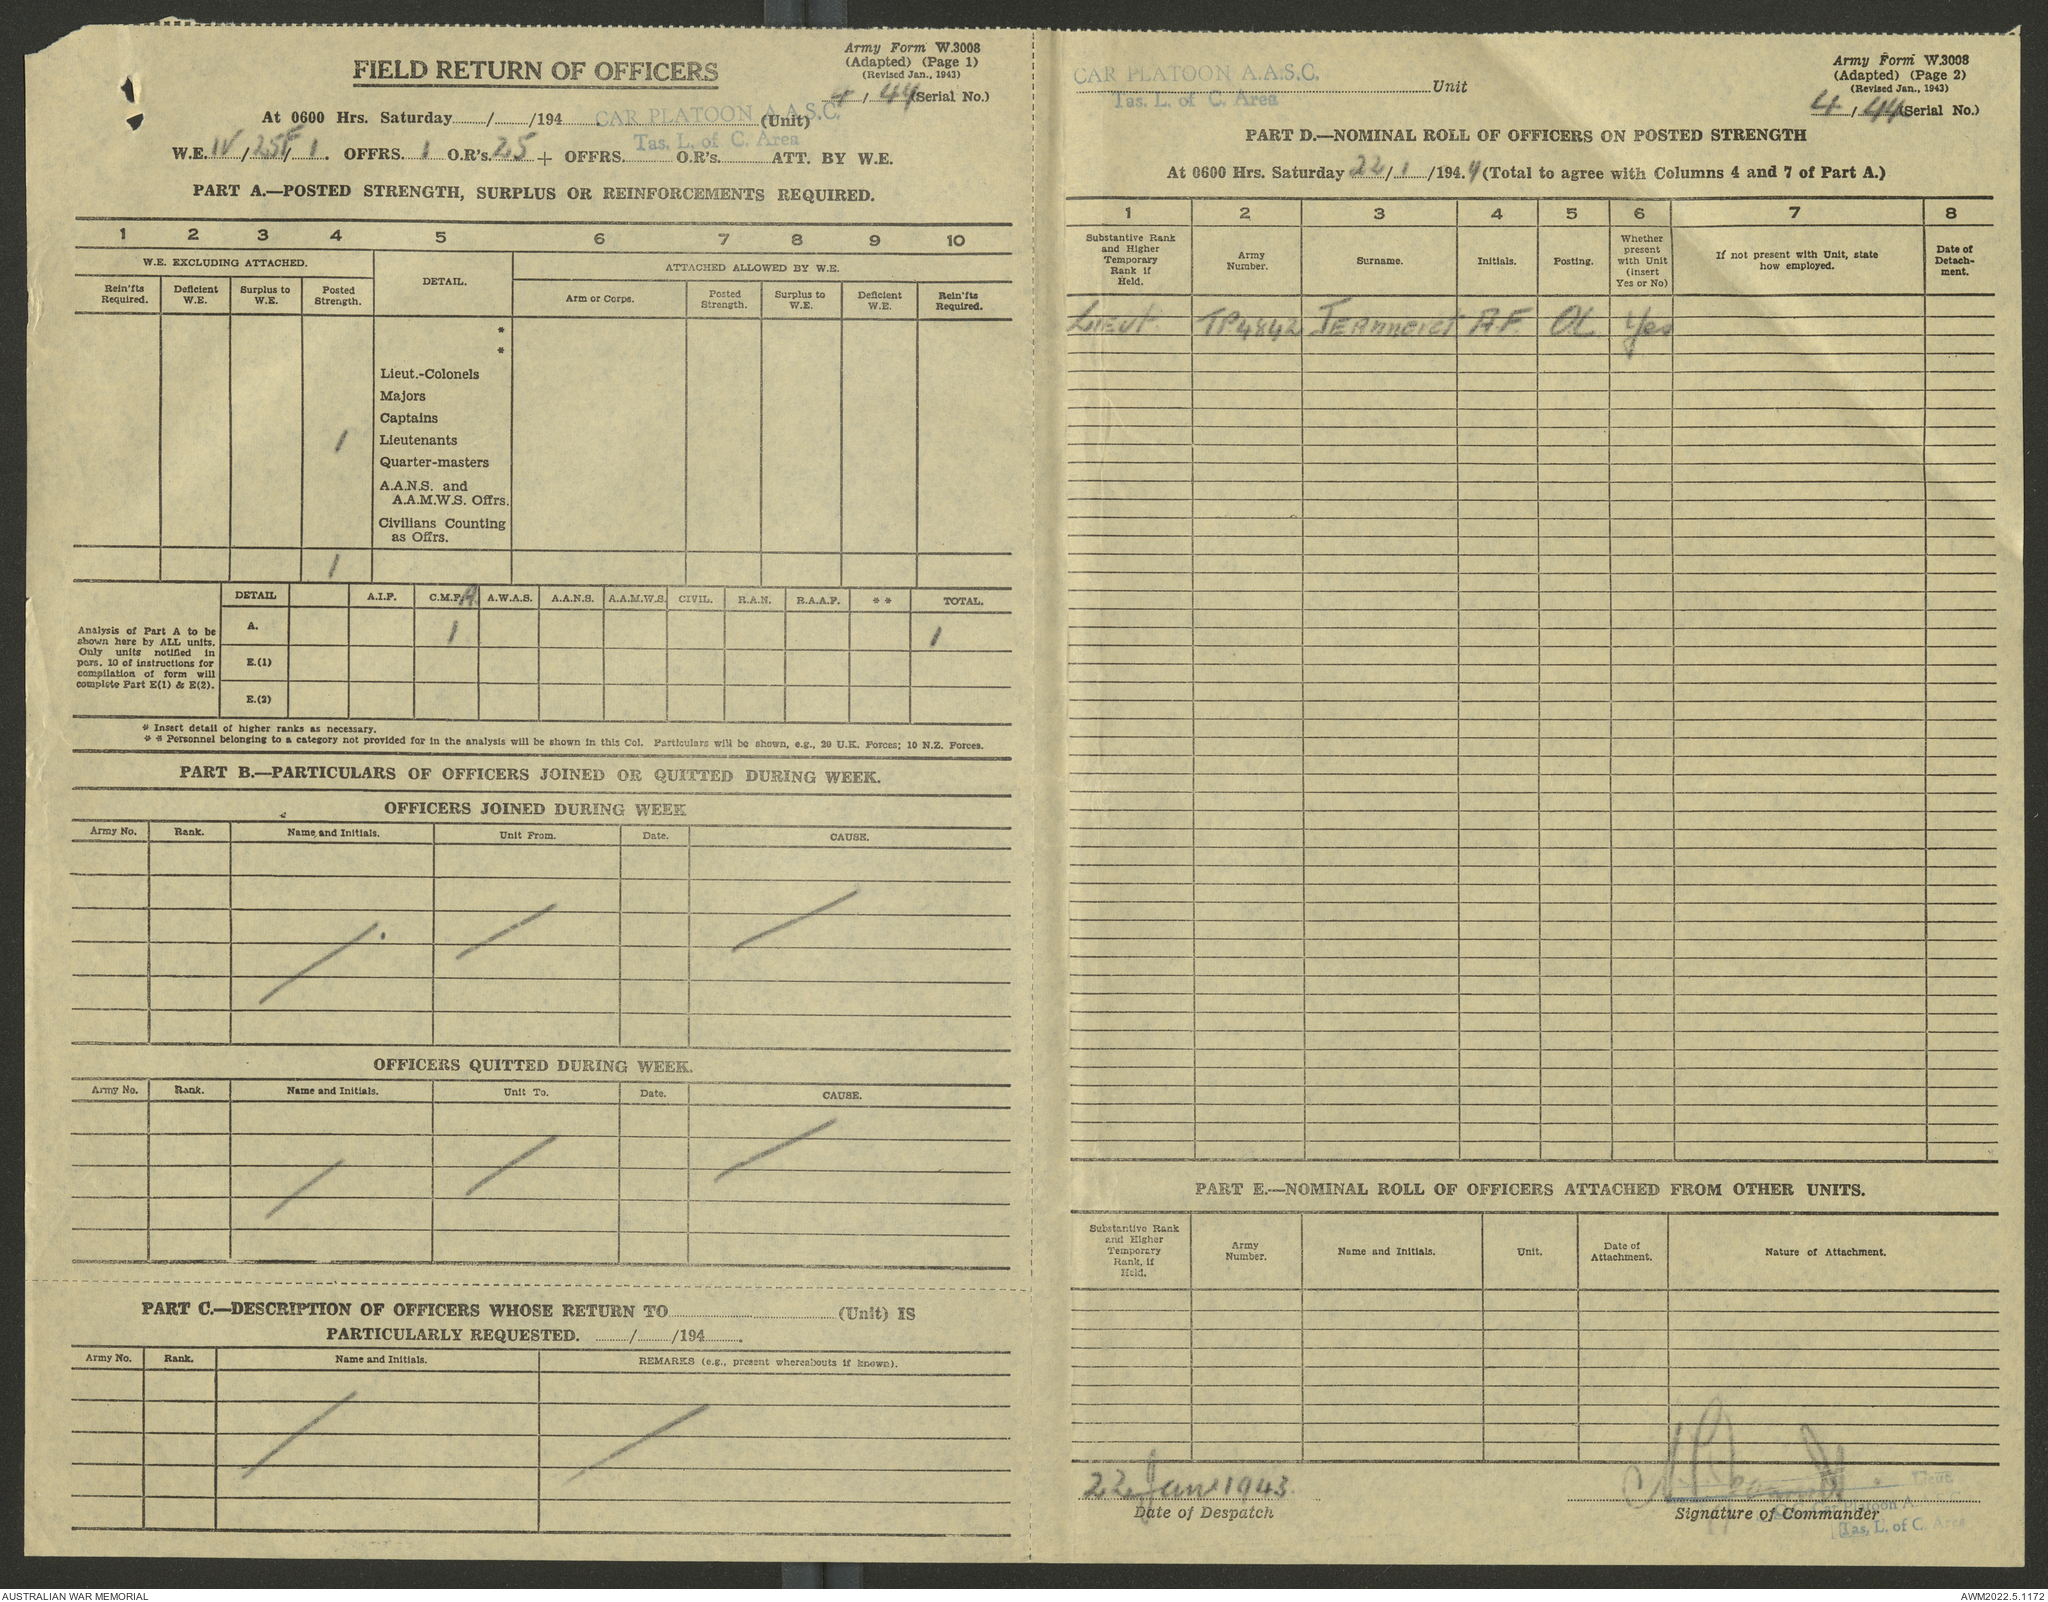 FIELD RETURN OF OFFICERS
Army Form W.3008
(Adapted) (Page 1)
(Revised Jan., 1943)
4 / 44 (Serial No.)
At 0600 Hrs. Saturday ...../...../194..... CAR PLATOON A.A.S.C. (Unit)
Tas. L. of C. Area
W.E. IV / 25F / 1. OFFRS. 1 O.R's. 25 + OFFRS. ..... O.R's. ..... ATT. BY W.E.
PART A.—POSTED STRENGTH, SURPLUS OR REINFORCEMENTS REQUIRED.
1 2 3 4 5 6 7 8 9 10
W.E. EXCLUDING ATTACHED. DETAIL. ATTACHED ALLOWED BY W.E.
Rein'fts Required. Deficient W.E. Surplus to W.E. Posted Strength. Arm or Corps. Posted Strength. Surplus to W.E. Deficient W.E. Rein'fts Required.
*
*
Lieut.-Colonels
Majors
Captains
1 Lieutenants
Quarter-masters
A.A.N.S. and
A.A.M.W.S. Offrs.
Civilians Counting
as Offrs.
1
DETAIL A.I.F. C.M.F. A. A.W.A.S. A.A.N.S. A.A.M.W.S. CIVIL. R.A.N. R.A.A.F. * * TOTAL.
Analysis of Part A to be
shown here by ALL units.
Only units notified in
para. 10 of instructions for
compilation of form will
complete Part E(1) & E(2).
A. 1 1
E.(1)
E.(2)
* Insert detail of higher ranks as necessary.
* * Personnel belonging to a category not provided for in the analysis will be shown in this Col. Particulars will be shown, e.g., 20 U.K. Forces; 10 N.Z. Forces.
PART B.—PARTICULARS OF OFFICERS JOINED OR QUITTED DURING WEEK.
OFFICERS JOINED DURING WEEK
Army No. Rank. Name and Initials. Unit From. Date. CAUSE.
OFFICERS QUITTED DURING WEEK.
Army No. Rank. Name and Initials. Unit To. Date. CAUSE.
PART C.—DESCRIPTION OF OFFICERS WHOSE RETURN TO .......... (Unit) IS
PARTICULARLY REQUESTED. ...../...../194.....
Army No. Rank. Name and Initials. REMARKS (e.g., present whereabouts if known).
CAR PLATOON A.A.S.C. Unit
Tas. L. of C. Area
Army Form W.3008
(Adapted) (Page 2)
(Revised Jan., 1943)
4 / 44 (Serial No.)
PART D.—NOMINAL ROLL OF OFFICERS ON POSTED STRENGTH
At 0600 Hrs. Saturday 22 / 1 /194.4 (Total to agree with Columns 4 and 7 of Part A.)
1 2 3 4 5 6 7 8
Substantive Rank and Higher Temporary Rank if Held. Army Number. Surname. Initials. Posting. Whether present with Unit (insert Yes or No) If not present with Unit, state how employed. Date of Detach-ment.
Lieut. TP4842 A.F. OC Yes
PART E.—NOMINAL ROLL OF OFFICERS ATTACHED FROM OTHER UNITS.
Substantive Rank and Higher Temporary Rank, if Held. Army Number. Name and Initials. Unit. Date of Attachment. Nature of Attachment.
22 Jan 1943
Date of Despatch
Lieut.
Signature of Commander
O.C. Car Platoon A.
Tas. L. of C. Area
AUSTRALIAN WAR MEMORIAL
AWM2022.5.1172